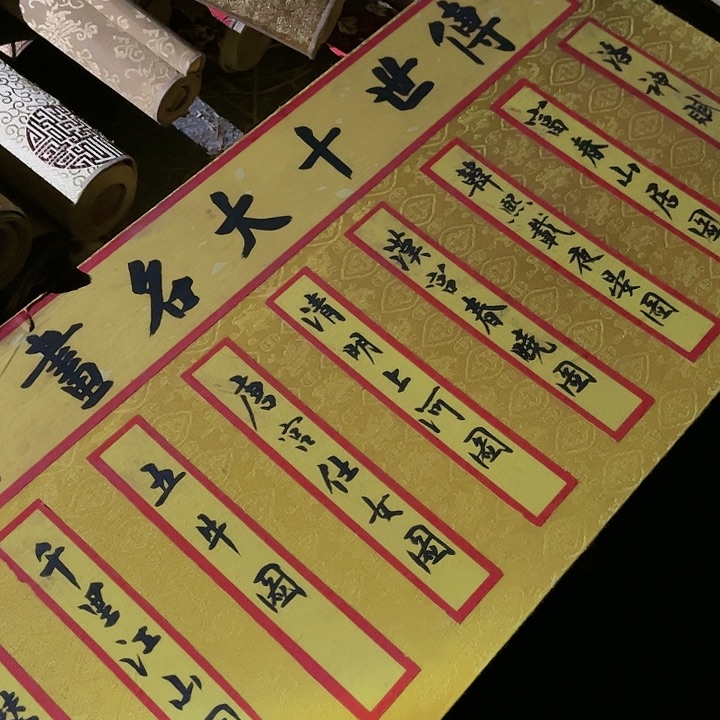 傳世十大名畫
洛神賦
富春山居圖
韓熙載夜晏圖
漢宮春曉圖
清明上河圖
唐宮仕女圖
五牛圖
千里江山圖